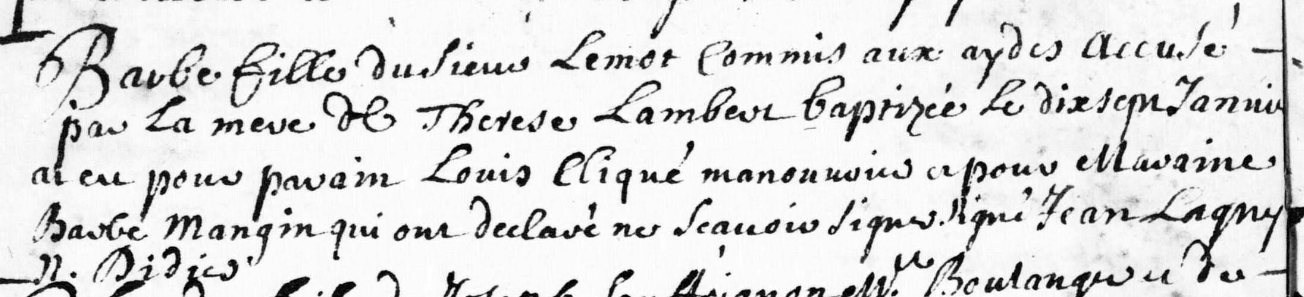 Barbe fille du sieur Lemot Commis aux aydes Accusé
par la mere de Therese Lambert baptizée le dixsept Janvier
a eu pour parain Louis Cliqué manouvrier et pour Maraine
Barbe Mangin qui ont declaré ne scavoir signer signé Jean Lagny
N. Didier
Boulanger et de